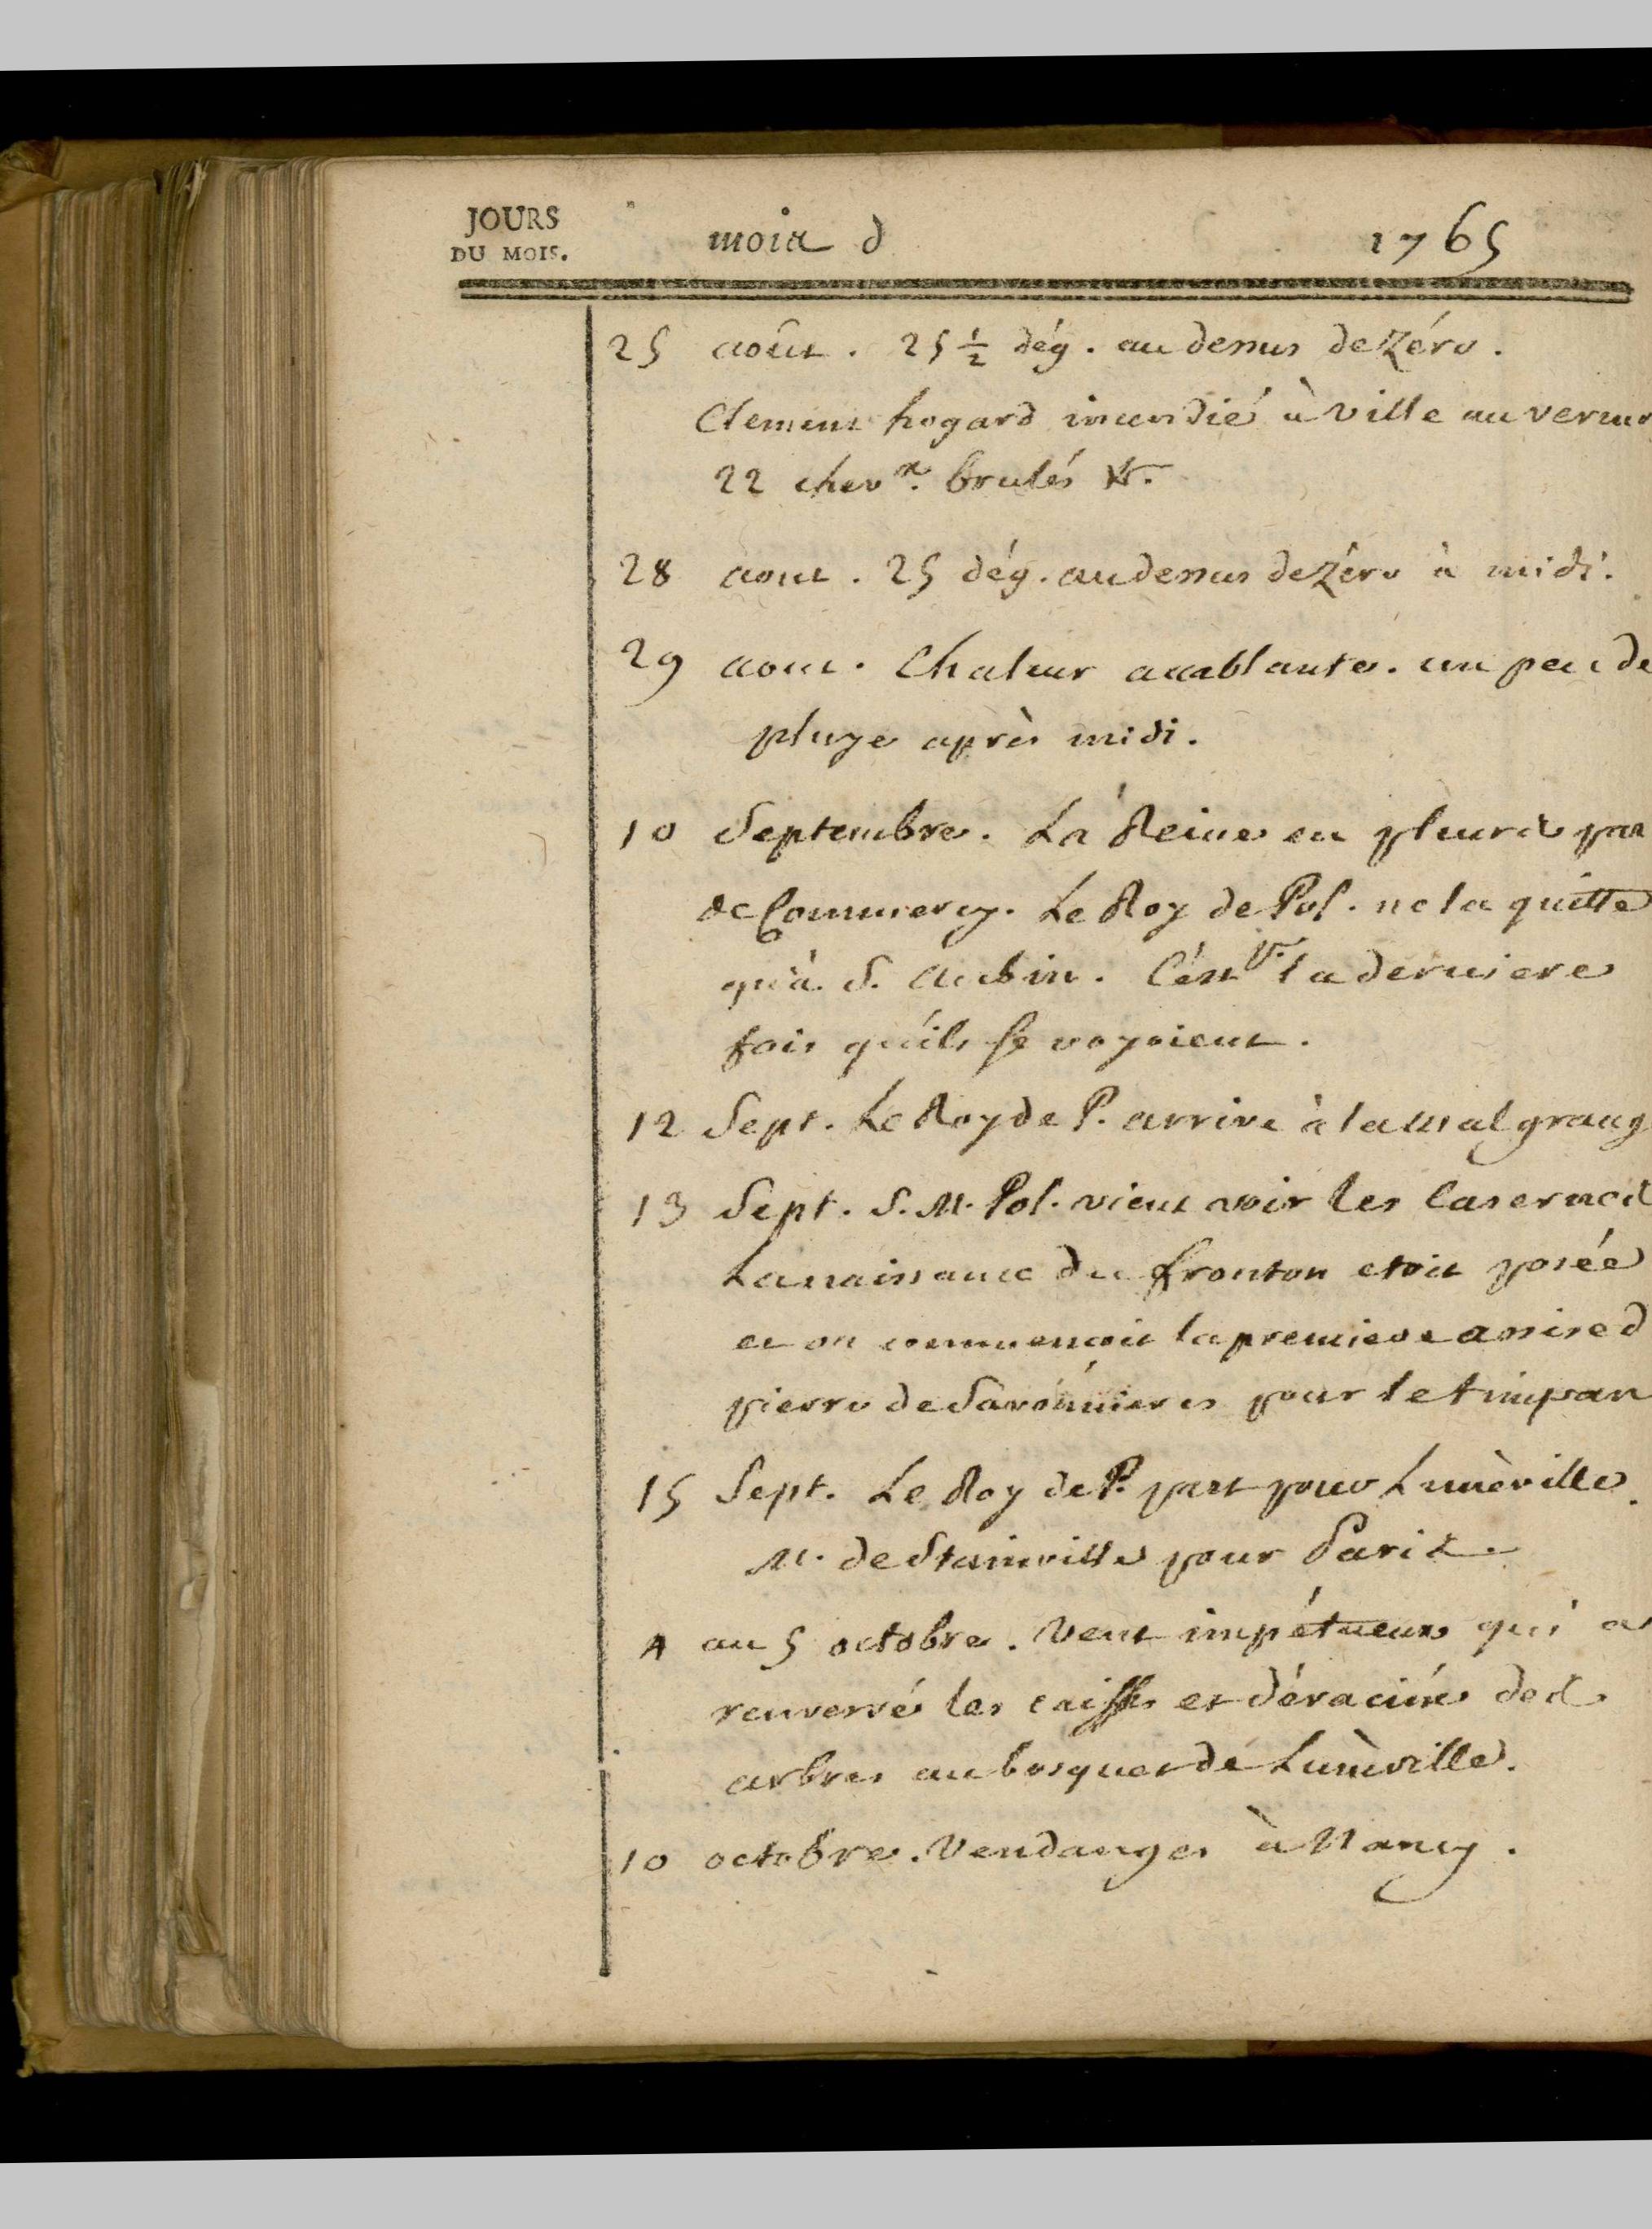 JOURS
DU MOIS.
mois d 1765
25 août. 25 ½ dég. au dessus de Zéro.
Clement hogard incendié à Ville au vermo
22 chevx. brulés &.
28 aout. 25 dég. au dessus de Zéro à midi.
29 aout. Chaleur accablante. un peu de
pluye après midi.
10 Septembre. La Reine en pleurs par
de Commercy. Le Roy de Pol. ne la quitte
qu'à S. Aubin. C'est la derniere
fois qu'ils se voyoient.
12 Sept. Le Roy de P. arrive à la Malgrang
13 Sept. S. M. Pol. vient voir les Casernes
La naissance du fronton etoit posée
et on commençoit la premiere assise d
pierre de Savonnieres pour le timpan
15 Sept. Le Roy de P. part pour Lunéville.
M. de Stainville pour Paris.
4 au 5 octobre. Vent impétueux qui a
renversé les caisses et déraciné des
arbres au bosquet de Lunéville.
10 octobre. Vendanges à Nancy.